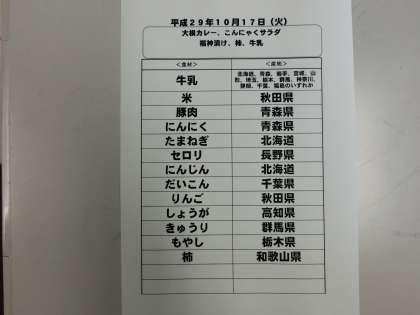 平成29年10月17日（火）
大根カレー、こんにゃくサラダ
福神漬け、柿、牛乳
＜食材＞ ＜産地＞
牛乳 北海道、青森、岩手、宮城、山
形、埼玉、栃木、群馬、神奈川、
静岡、千葉、福島のいずれか
米 秋田県
豚肉 青森県
にんにく 青森県
たまねぎ 北海道
セロリ 長野県
にんじん 北海道
だいこん 千葉県
りんご 秋田県
しょうが 高知県
きゅうり 群馬県
もやし 栃木県
柿 和歌山県